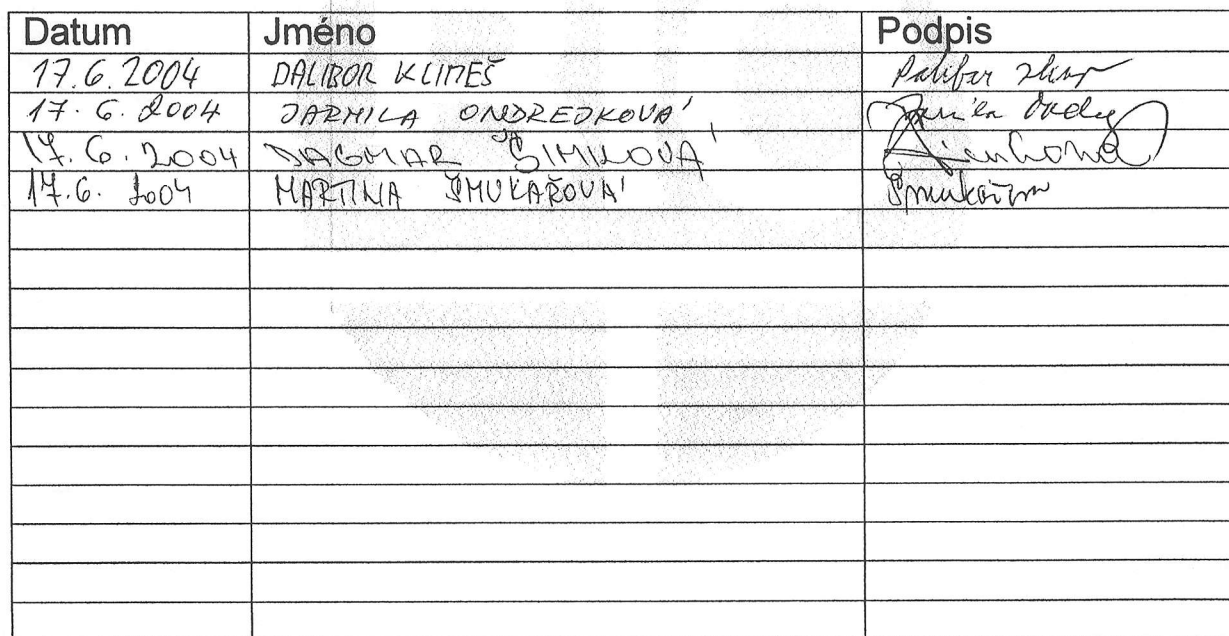 Datum Jméno Podpis
17.6.2004 DALIBOR KLIMEŠ
17.6.2004 JARMILA ONDREJKOVÁ
17.6.2004 DAGMAR ŠIMIKOVÁ
17.6.2004 MARTINA ŠMUKAŘOVÁ